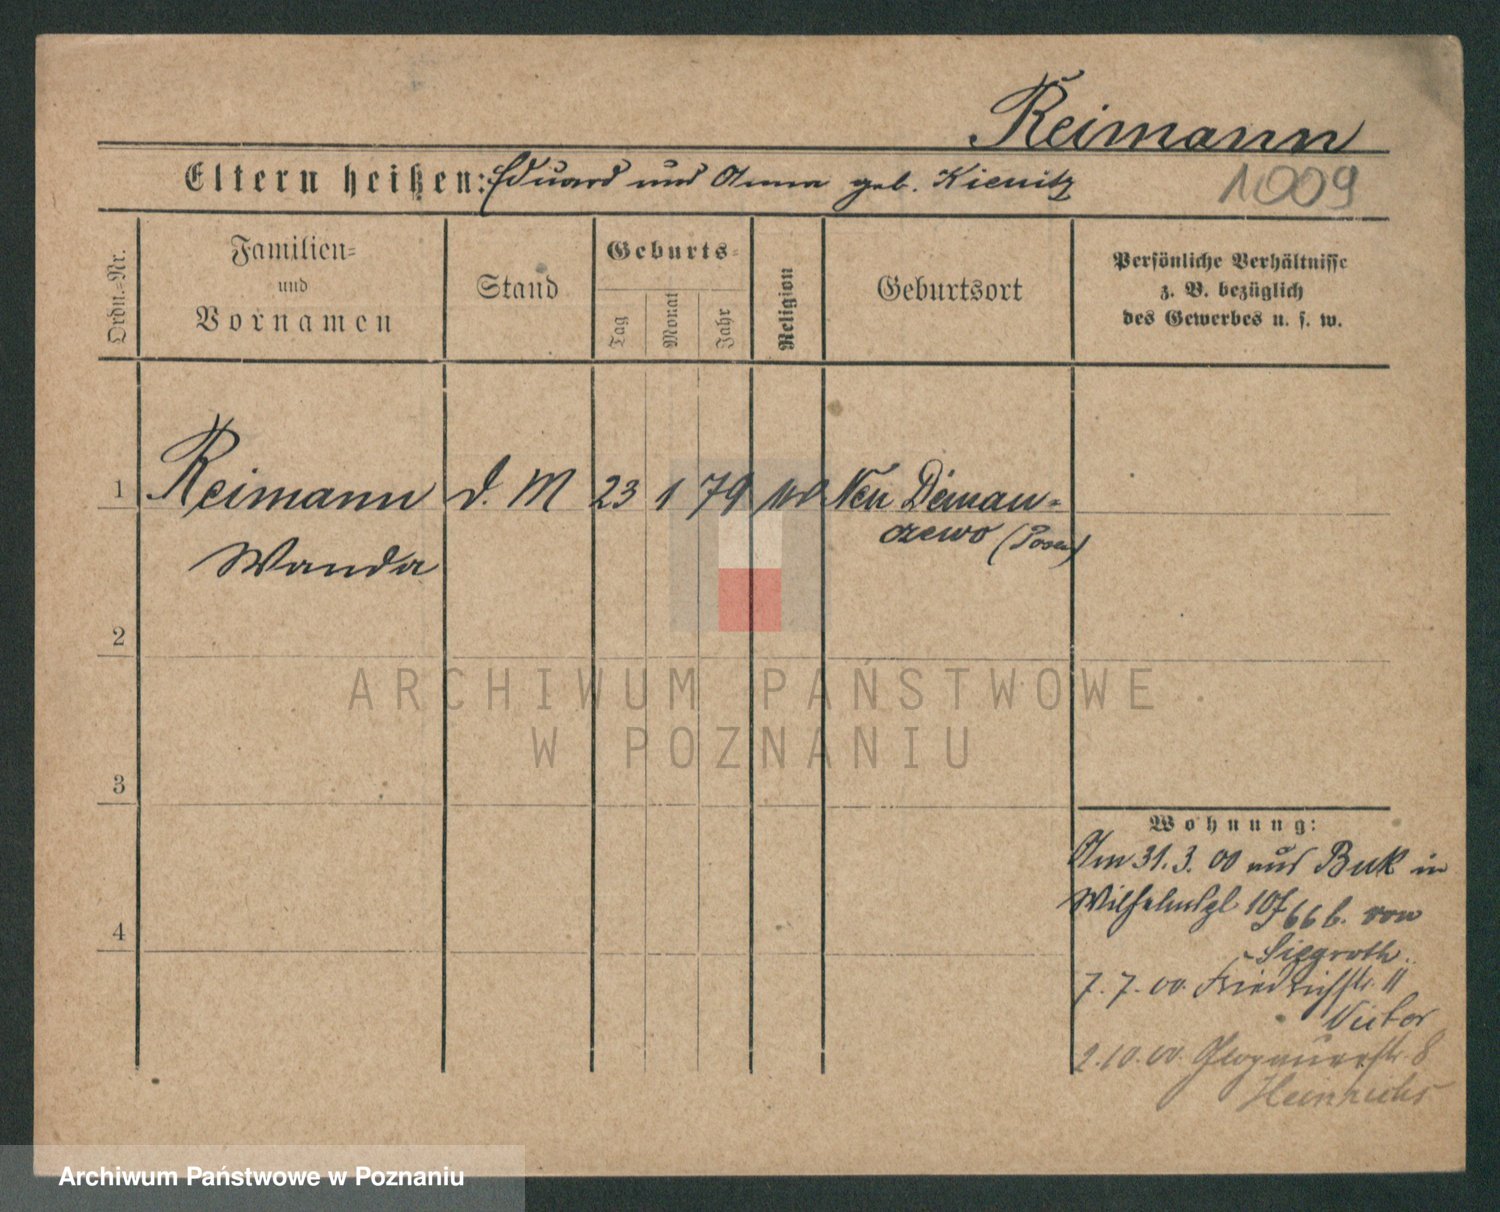 Reimann
Eltern heißen: Eduard und Anna geb. Kienitz
1009
Ordn.-Nr.
Familien- und Vornamen
Stand
Geburts-
Tag
Monat
Jahr
Religion
Geburtsort
Persönliche Verhältnisse
z. B. bezüglich
des Gewerbes u. s. w.
1 Reimann d. M 23 1 79 Neu Deman-
czewo (Posen)
Wanda
2
3
4
ARCHIWUM PAŃSTWOWE
W POZNANIU
Wohnung:
Am 31.3.00 aus Buk in
Wilhelmspl 10 b. von
Siegroth
7.7.00 Friedrichstr. 11
Victor
2.10.00 Glogauerstr. 8
Heinrichs
Archiwum Państwowe w Poznaniu